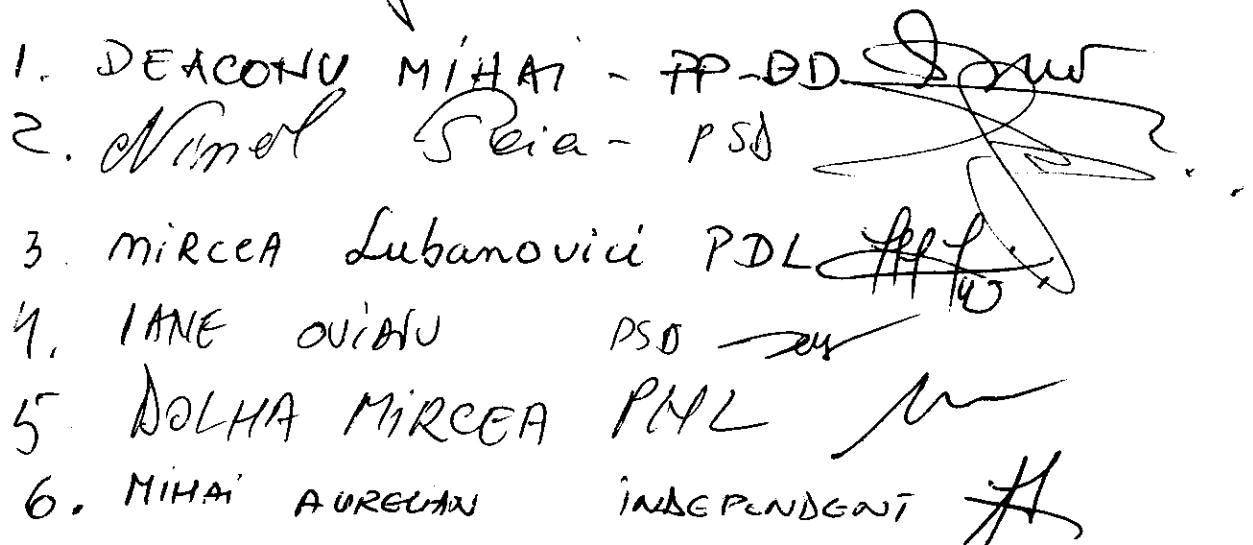 1. DEACONU MIHAI - PP-DD
2. Ninel Peia - PSD
3. MIRCEA Lubanovici PDL
4. IANE OVIDIU PSD
5 DOLHA MIRCEA PNL
6. MIHAI AURELIAN INDEPENDENT